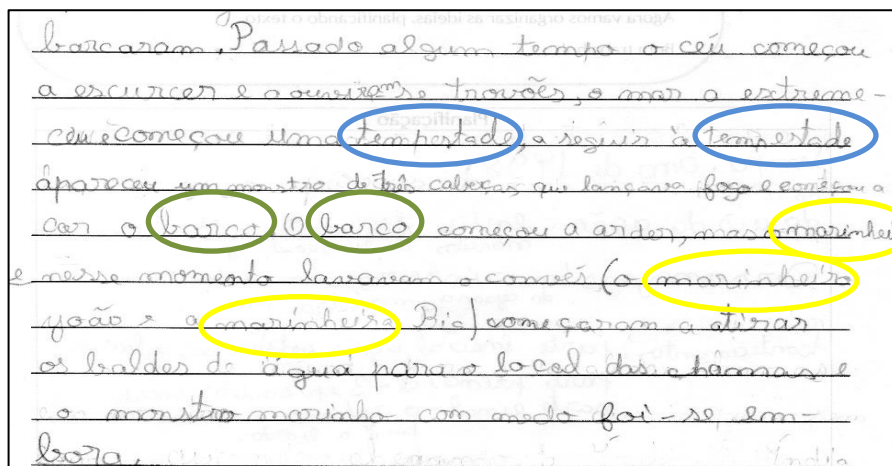 barcaram. Passado algum tempo o céu começou
a escurcer e a ouviram se trovões, o mar a estreme-
ceu e começou uma tempestade, a seguir à tempestade
apareceu um monstro de três cabeças que lançava fogo e começou a
car o barco. O barco começou a arder, mas o marinhei
e nesse momento lavavam o convés (o marinheiro
joão e a marinheira Bia) começaram a atirar
os baldes de água para o local das chamas e
e o monstro marinho com medo foi-se, em-
bora.